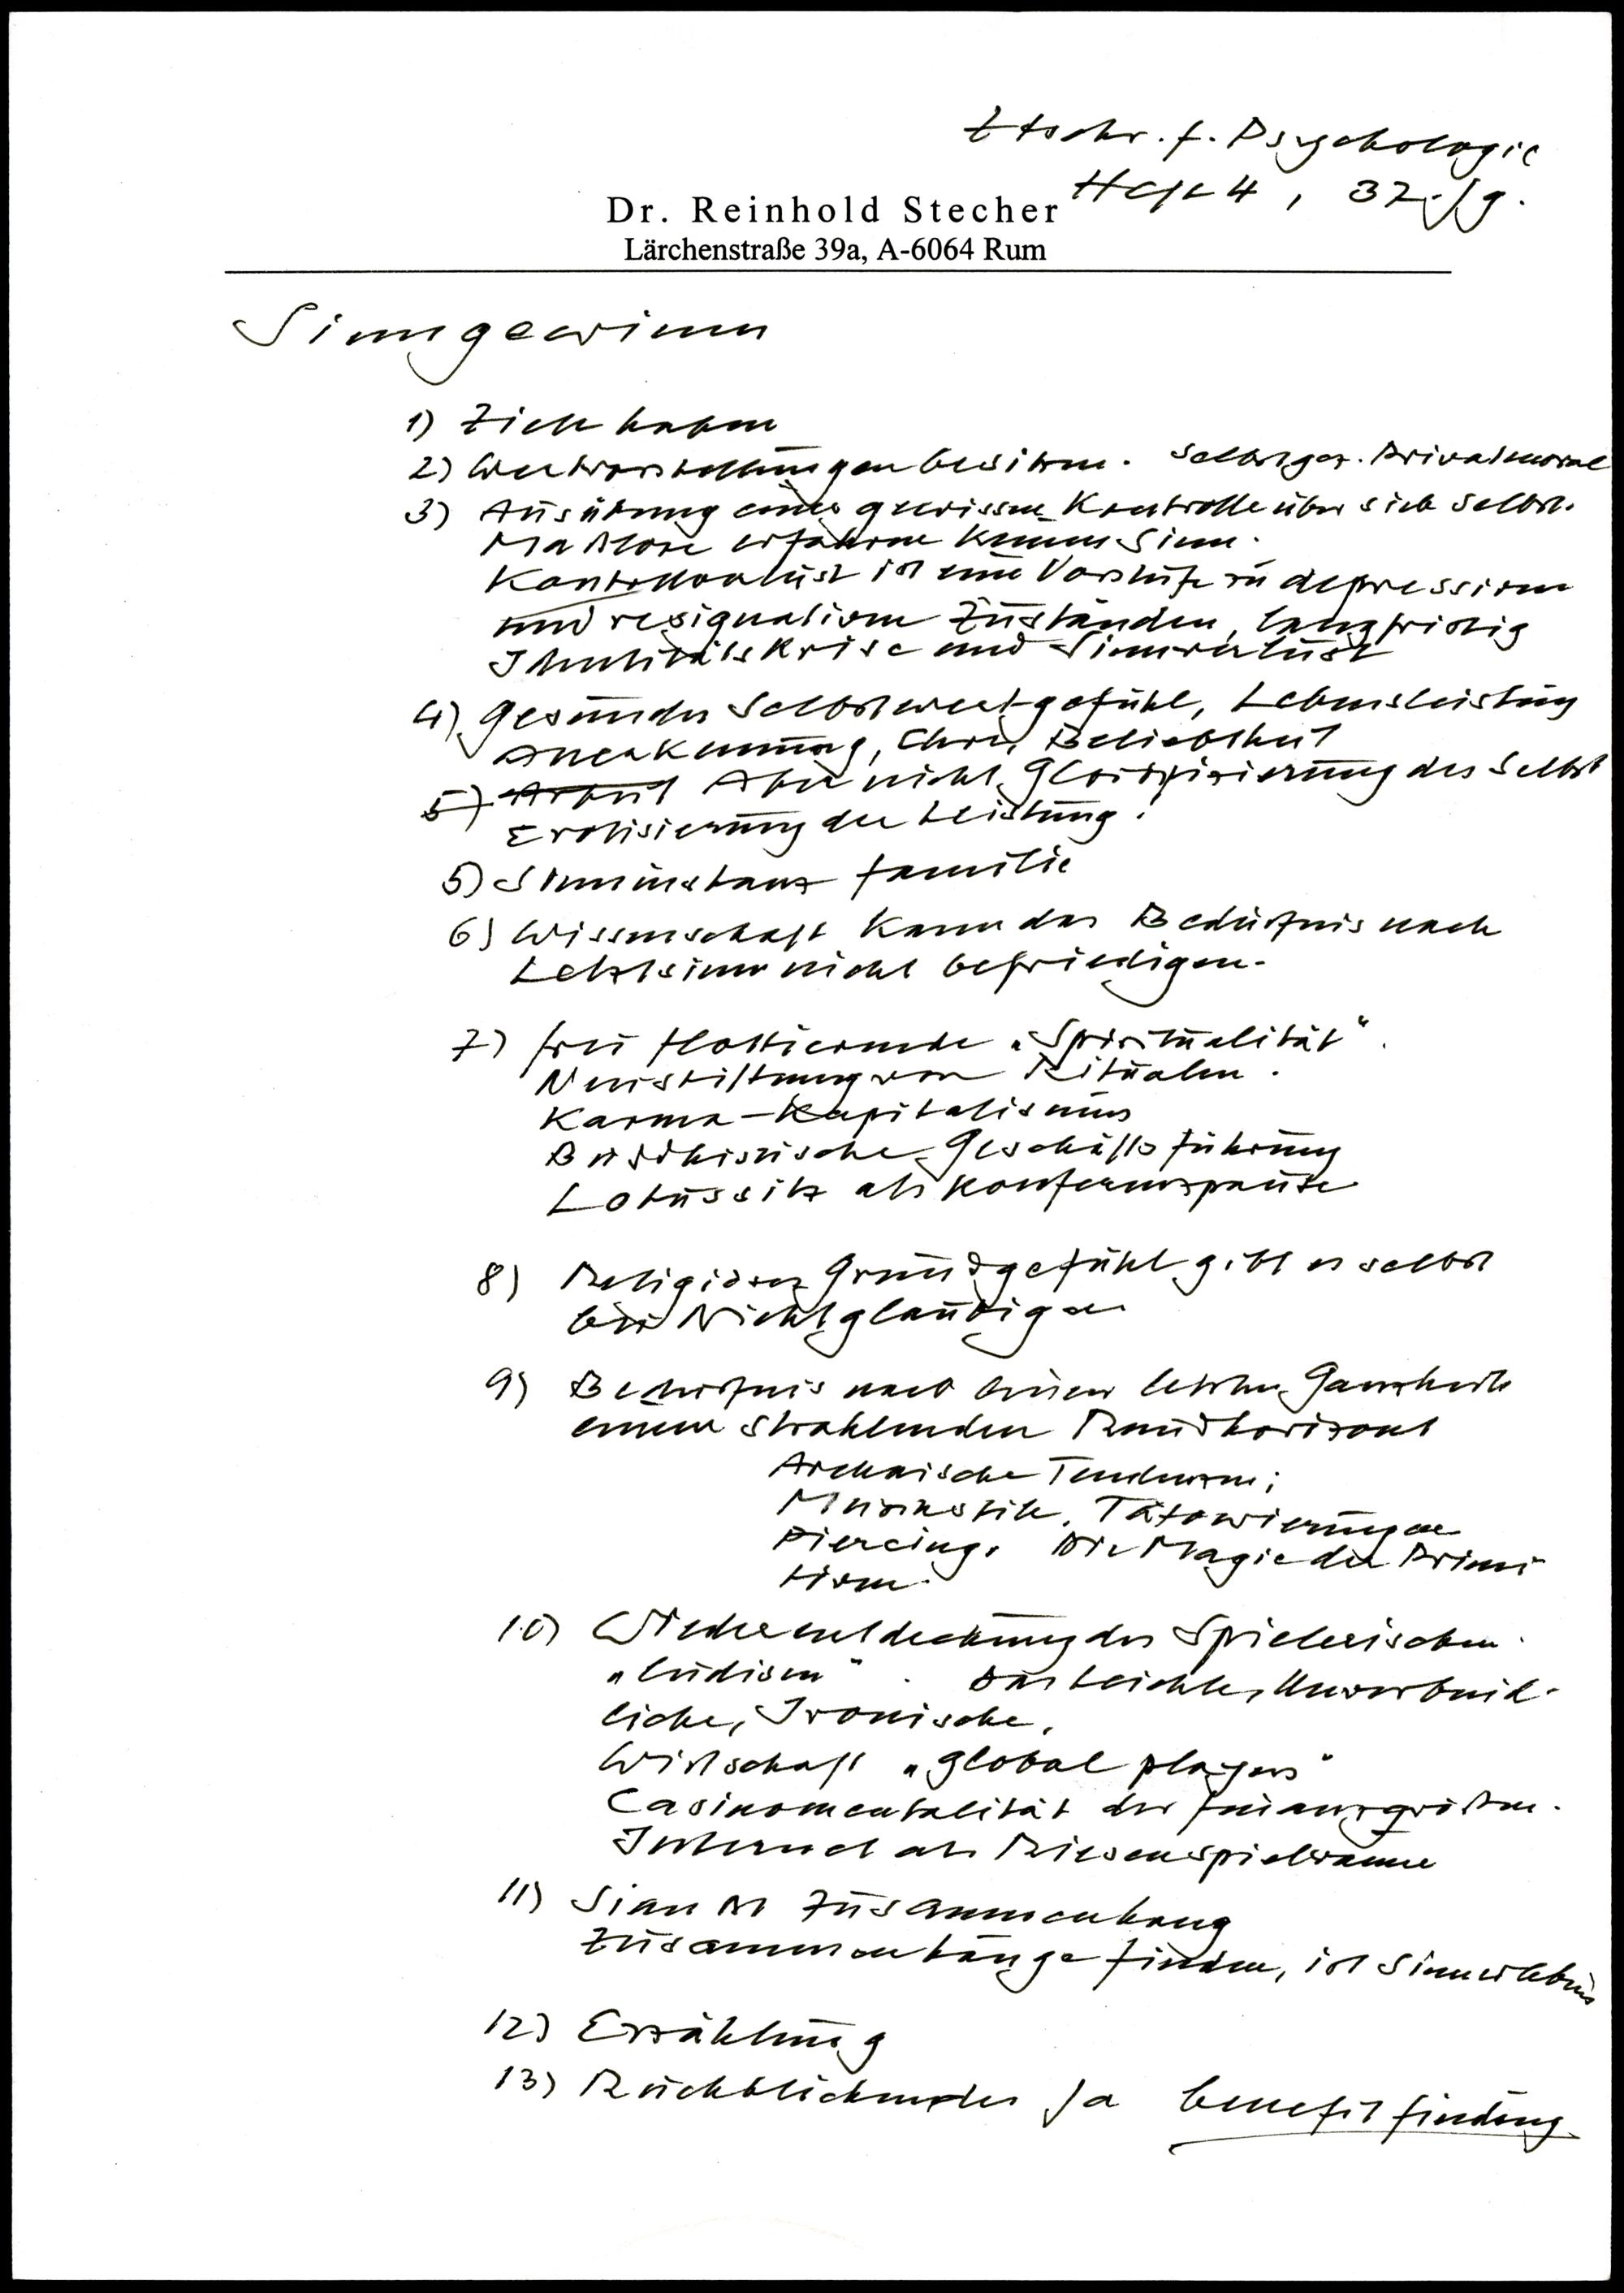 Ztschr. f. Psychologie
Heft 4, 32. Jg.
Dr. Reinhold Stecher
Lärchenstraße 39a, A-6064 Rum
Sinngewinn
1) Ziele haben
2) Wertvorstellungen besitzen. Selbstgez. Privatmoral
3) Ausübung einer gewissen Kontrolle über sich selbst.
Maßlose erfahren keinen Sinn.
Kontrollverlust ist eine Vorstufe zu depressiven
und resignativen Zuständen, langfristig
Identitätskrise und Sinnverlust
4) Gesundes Selbstwertgefühl, Lebensleistung
Anerkennung, Ehre, Beliebtheit
5) Arbeit Aber nicht Glorifizierung des Selbst
Erotisierung der Leistung!
5) Sinninstanz Familie
6) Wissenschaft kann das Bedürfnis nach
Letztsinn nicht befriedigen.
7) frei flottierende „Spiritualität".
Neustiftung von Ritualen.
Karma-Kapitalismus
Buddhistische Geschäftsführung
Lotussitz als Konferenzpause
8) Religiöses Grundgefühl gibt es selbst
bei Nichtgläubigen
9) Bedürfnis nach einer letzten Ganzheit
einem strahlenden Rundhorizont
Archaische Tendenzen;
Musikstile, Tätowierungen
Piercing. Die Magie der Primi
tiven.
10) Wiederentdeckung des Spielerischen.
„ludisen". Das Leichte, Unverbind-
liche, Ironische,
Wirtschaft „global players"
Casinomentalität der Finanzgrößen.
Internet als Riesenspielwiese
11) Sinn ist Zusammenhang
Zusammenhänge finden, ist Sinnerlebnis
12) Erzählung
13) Rückblickendes Ja benefit finding